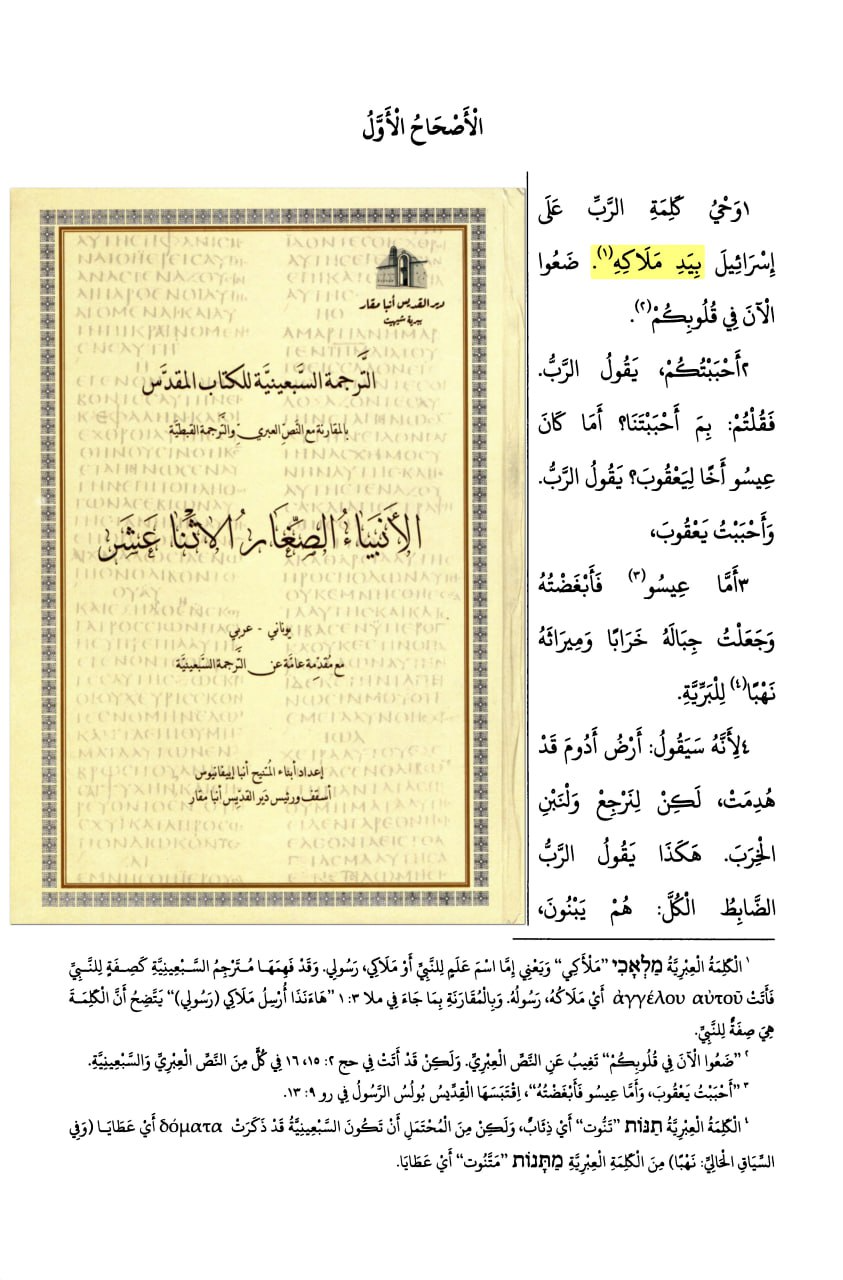 الْأَصْحَاحُ الْأَوَّلُ
١وَحْيُ كَلِمَةِ الرَّبِّ عَلَى
إِسْرَائِيلَ بِيَدِ مَلَاكِهِ(١). ضَعُوا
الْآنَ فِي قُلُوبِكُمْ(٢).
٢أَحْبَبْتُكُمْ، يَقُولُ الرَّبُّ.
فَقُلْتُمْ: بِمَ أَحْبَبْتَنَا؟ أَمَا كَانَ
عِيسُو أَخًا لِيَعْقُوبَ؟ يَقُولُ الرَّبُّ.
وَأَحْبَبْتُ يَعْقُوبَ،
٣أَمَّا عِيسُو(٣) فَأَبْغَضْتُهُ
وَجَعَلْتُ جِبَالَهُ خَرَابًا وَمِيرَاثَهُ
نَهْبًا(٤) لِلْبَرِّيَّةِ.
٤لِأَنَّهُ سَيَقُولُ: أَرْضُ أَدُومَ قَدْ
هُدِمَتْ، لَكِنْ لِنَرْجِعْ وَلْنَبْنِ
الْخِرَبَ. هَكَذَا يَقُولُ الرَّبُّ
الضَّابِطُ الْكُلَّ: هُمْ يَبْنُونَ،
دير القديس أنبا مقار
ببرية شيهيت
التَّرجمة السَّبعينيَّة للكتاب المقدَّس
بالمقارنة مع النَّص العبري والتَّرجمة القبطيَّة
الأَنبيَاءُ الصِّغَارُ الاثْنَا عَشَر
يوناني - عربي
مع مُقدِّمة عامَّة عن التَّرجمة السَّبعينيَّة
إعداد: أبناء المُتنيح أنبا إبيفانيوس
أسقف ورئيس دَير القدِّيس أنبا مقار
١ الْكَلِمَةُ الْعِبْرِيَّةُ מַלְאָכִי "مَلْأَكِي" وَيَعْنِي إِمَّا اسْمَ عَلَمٍ لِلنَّبِيِّ أَوْ مَلَاكِي، رَسُولِي. وَقَدْ فَهِمَهَا مُتَرْجِمُ السَّبْعِينِيَّةِ كَصِفَةٍ لِلنَّبِيِّ
فَأَتَتْ ἀγγέλου αὐτοῦ أَيْ مَلَاكُهُ، رَسُولُهُ. وَبِالْمُقَارَنَةِ بِمَا جَاءَ فِي ملا ٣: ١ "هَاءَنَذَا أُرْسِلُ مَلَاكِي (رَسُولِي)" يَتَّضِحُ أَنَّ الْكَلِمَةَ
هِيَ صِفَةٌ لِلنَّبِيِّ.
٢ "ضَعُوا الْآنَ فِي قُلُوبِكُمْ" تَغِيبُ عَنِ النَّصِّ الْعِبْرِيِّ. وَلَكِنْ قَدْ أَتَتْ فِي حج ٢: ١٥، ١٦ فِي كُلٍّ مِنَ النَّصِّ الْعِبْرِيِّ وَالسَّبْعِينِيَّةِ.
٣ "أَحْبَبْتُ يَعْقُوبَ، وَأَمَّا عِيسُو فَأَبْغَضْتُهُ"، اِقْتَبَسَهَا الْقِدِّيسُ بُولُسُ الرَّسُولُ فِي رو ٩: ١٣.
٤ الْكَلِمَةُ الْعِبْرِيَّةُ תַנּוֹת "تَنُّوت" أَيْ ذِئَابٌ، وَلَكِنْ مِنَ الْمُحْتَمَلِ أَنْ تَكُونَ السَّبْعِينِيَّةُ قَدْ ذَكَرَتْ δόματα أَيْ عَطَايَا (وَفِي
السِّيَاقِ الْحَالِيِّ: نَهْبًا) مِنَ الْكَلِمَةِ الْعِبْرِيَّةِ מַתָּנוֹת "مَتَنُوت" أَيْ عَطَايَا.